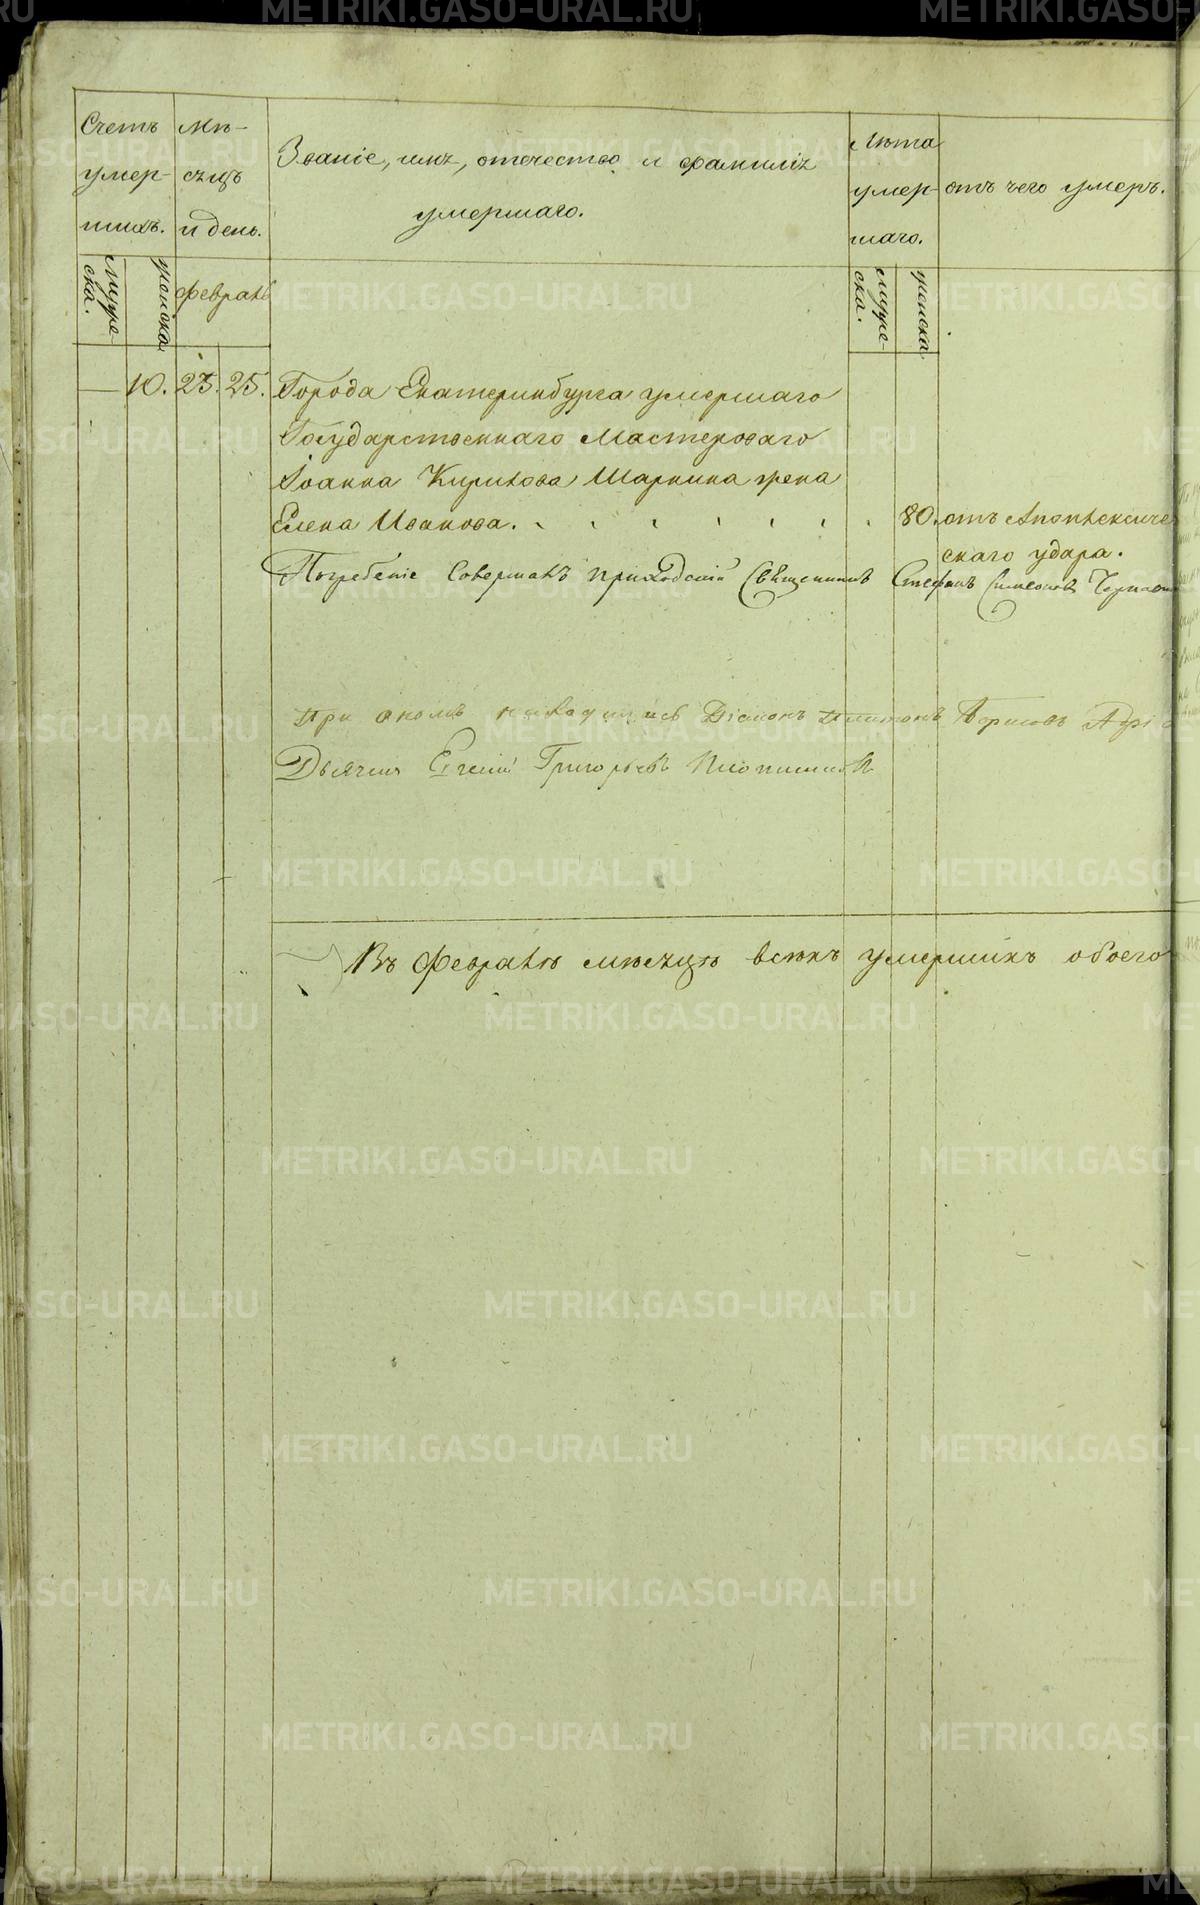 Счетъ умер-шихъ.
Мѣ-сяцъ и день.
Званіе, имя, отечество и фамилія
умершаго.
Лѣта умер-шаго.
отъ чего умеръ.
муже-ска.
женска
февраль
муже-ска.
женска
— 10. 23. 25. Города Екатеринбурга умершаго
Государственнаго Мастероваго
Іоанна Кирилова Шаркина жена
Елена Иванова. 80. отъ Апоплексиче
скаго удара.
Погребеніе Совершалъ приходскій Священникъ Стефанъ Симеоновъ
При ономъ находились Діаконъ Платонъ Борисовъ
Дьячекъ Евгеній Григорьевъ
Въ февралѣ мѣсяцѣ всѣхъ умершихъ обоего
METRIKI.GASO-URAL.RU